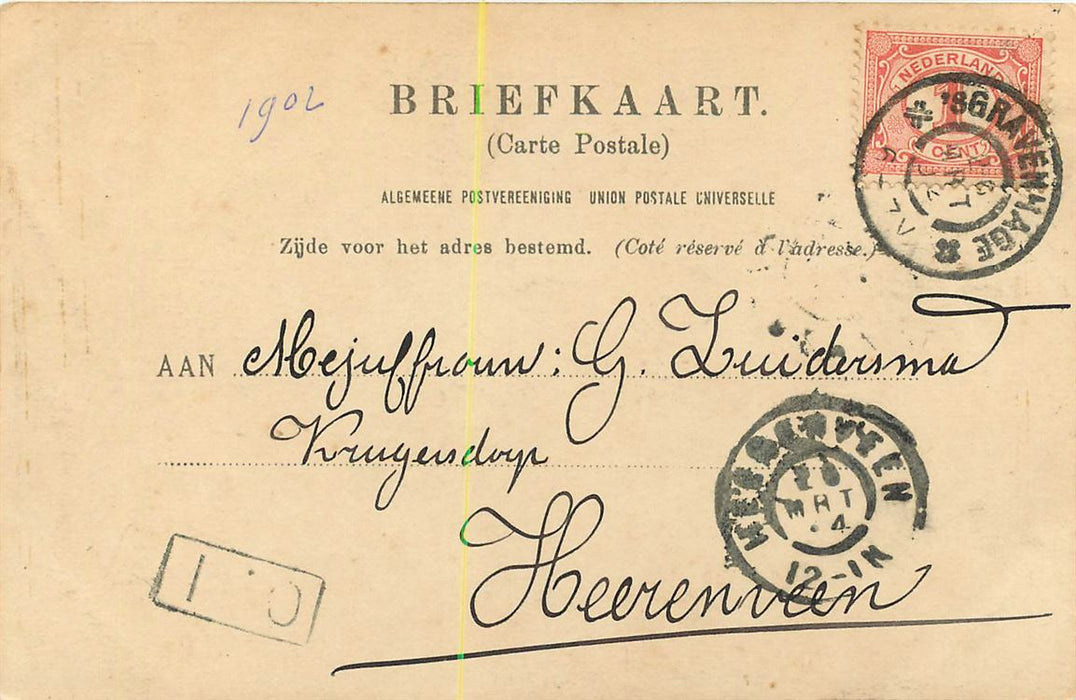 1902
BRIEFKAART.
(Carte Postale)
ALGEMEENE POSTVEREENIGING UNION POSTALE UNIVERSELLE
Zijde voor het adres bestemd. (Coté réservé à l'adresse.)
NEDERLAND
1
CENT
'SGRAVENHAGE
MRT
AAN Mejuffrouw: G. Zuidersma
Krugersdorp
Heerenveen
HEERENVEEN
MRT
4
12-1N